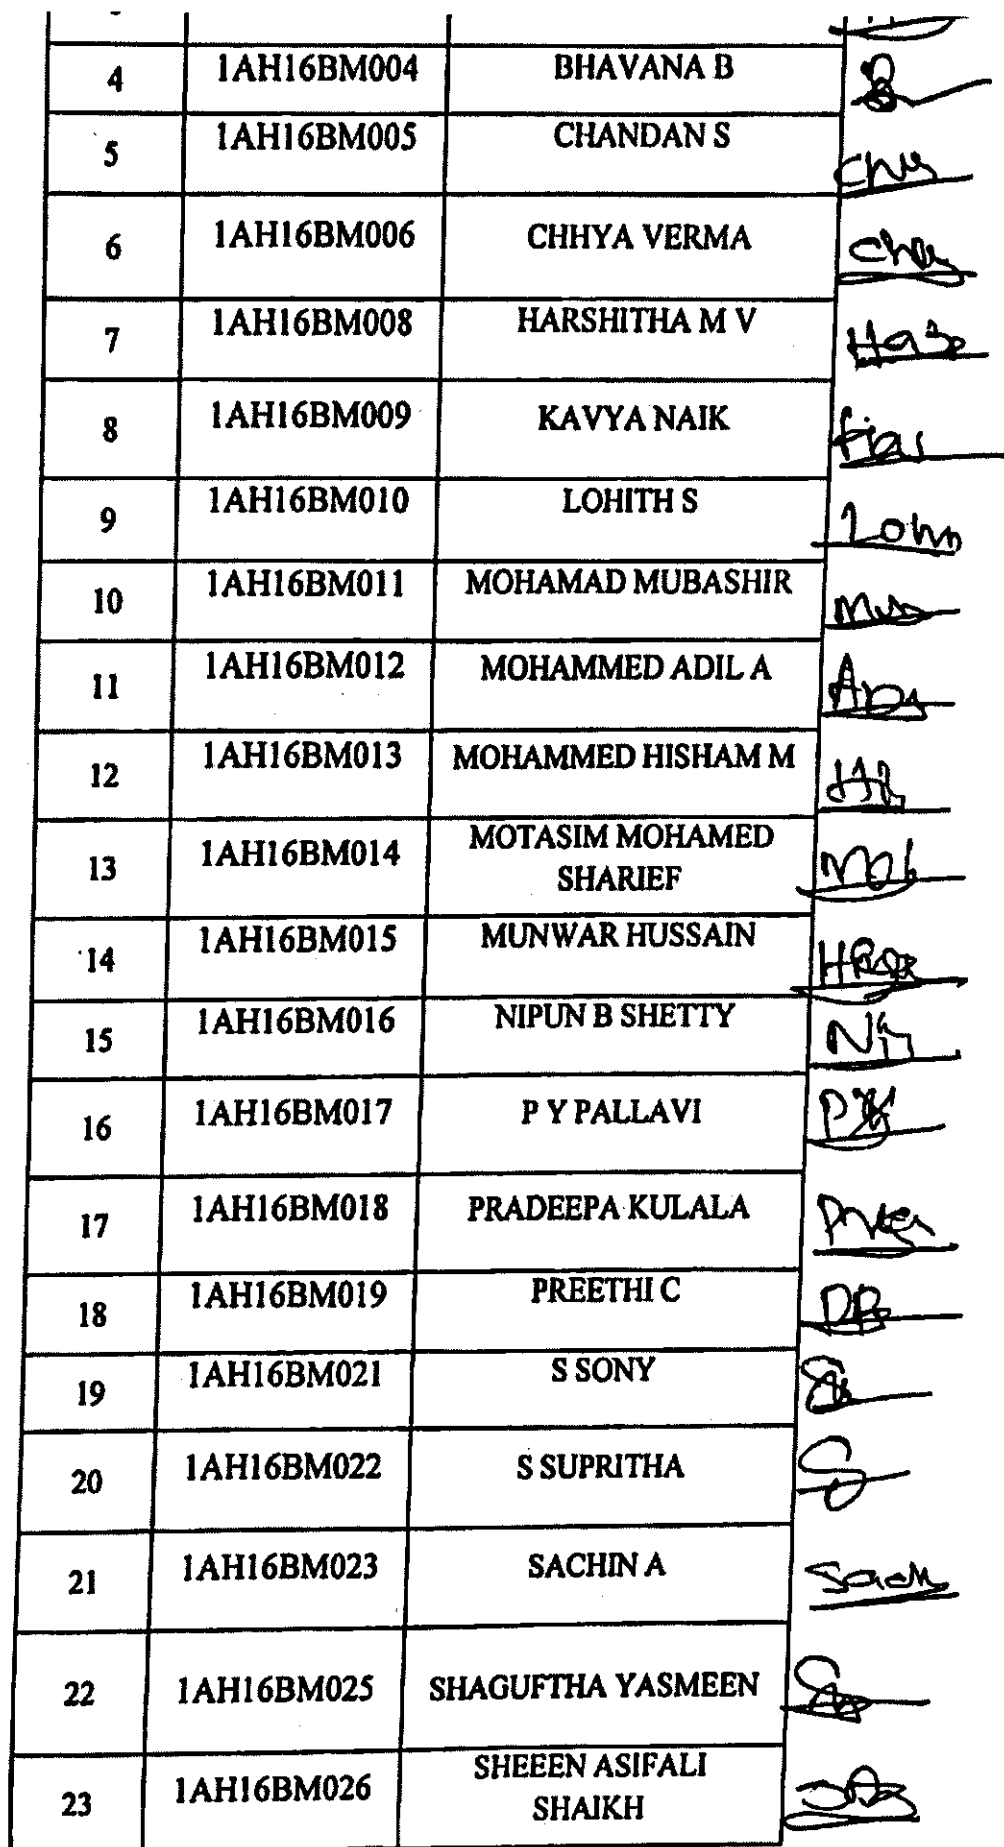 4 1AH16BM004 BHAVANA B
5 1AH16BM005 CHANDAN S
6 1AH16BM006 CHHYA VERMA
7 1AH16BM008 HARSHITHA M V
8 1AH16BM009 KAVYA NAIK
9 1AH16BM010 LOHITH S
10 1AH16BM011 MOHAMAD MUBASHIR
11 1AH16BM012 MOHAMMED ADIL A
12 1AH16BM013 MOHAMMED HISHAM M
13 1AH16BM014 MOTASIM MOHAMED
SHARIEF
14 1AH16BM015 MUNWAR HUSSAIN
15 1AH16BM016 NIPUN B SHETTY
16 1AH16BM017 P Y PALLAVI
17 1AH16BM018 PRADEEPA KULALA
18 1AH16BM019 PREETHI C
19 1AH16BM021 S SONY
20 1AH16BM022 S SUPRITHA
21 1AH16BM023 SACHIN A
22 1AH16BM025 SHAGUFTHA YASMEEN
23 1AH16BM026 SHEEEN ASIFALI
SHAIKH